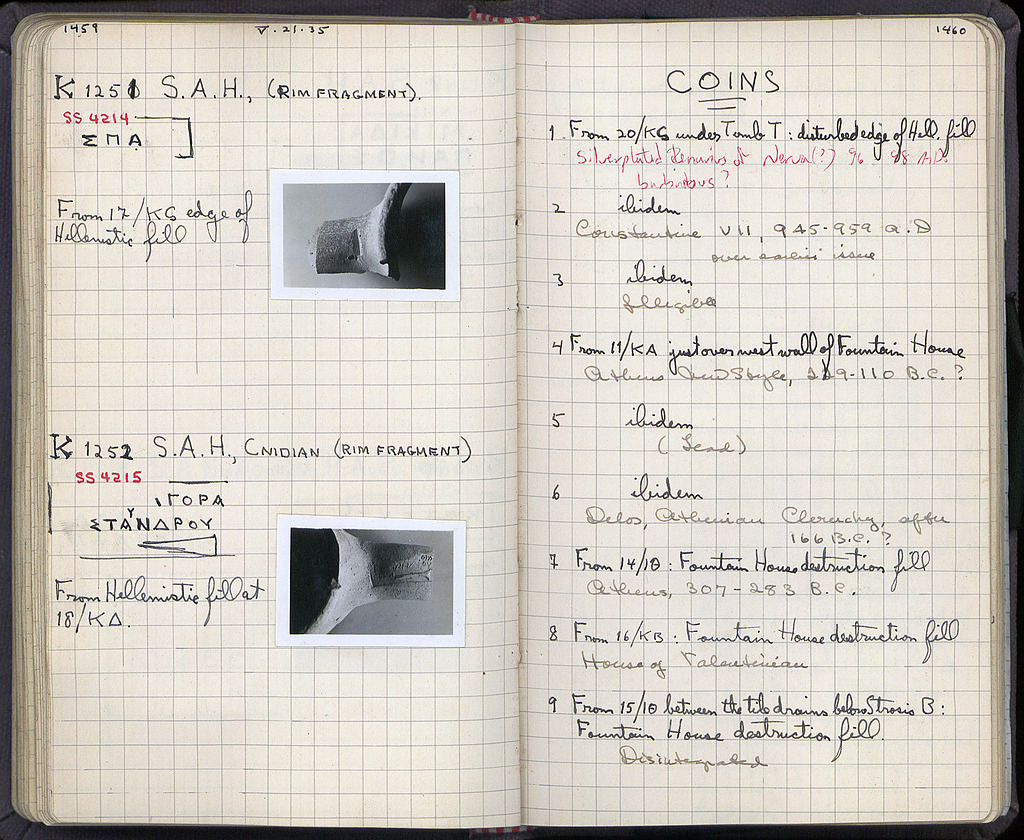 1459 V.21.35
K 1251 S.A.H., (RIM FRAGMENT).
SS 4214
ΣΠΑ
From 17/ΚΣ edge of
Hellenistic fill
K 1252 S.A.H., CNIDIAN (RIM FRAGMENT)
SS 4215
ΓΟΡΑ
ΣΤΑΝΔΡΟΥ
From Hellenistic fill at
18/ΚΔ.
1460
COINS
1 From 20/ΚΣ under Tomb T: disturbed edge of Hell. fill
Silverplated Denarius of Nerva(?) 96-98 A.D.
barbarous?
2 ibidem
Constantine VII, 945-959 A.D
over earlier issue
3 ibidem
Illegible
4 From 11/ΚΑ just over west wall of Fountain House
Athens New Style, 229-110 B.C. ?
5 ibidem
(Lead)
6 ibidem
Delos, Athenian Cleruchy, after
166 B.C. ?
7 From 14/ΙΘ: Fountain House destruction fill
Athens, 307-283 B.C.
8 From 16/ΚΒ: Fountain House destruction fill
House of Valentinian
9 From 15/ΙΘ between the tile drains below Strosis B:
Fountain House destruction fill.
Disintegrated